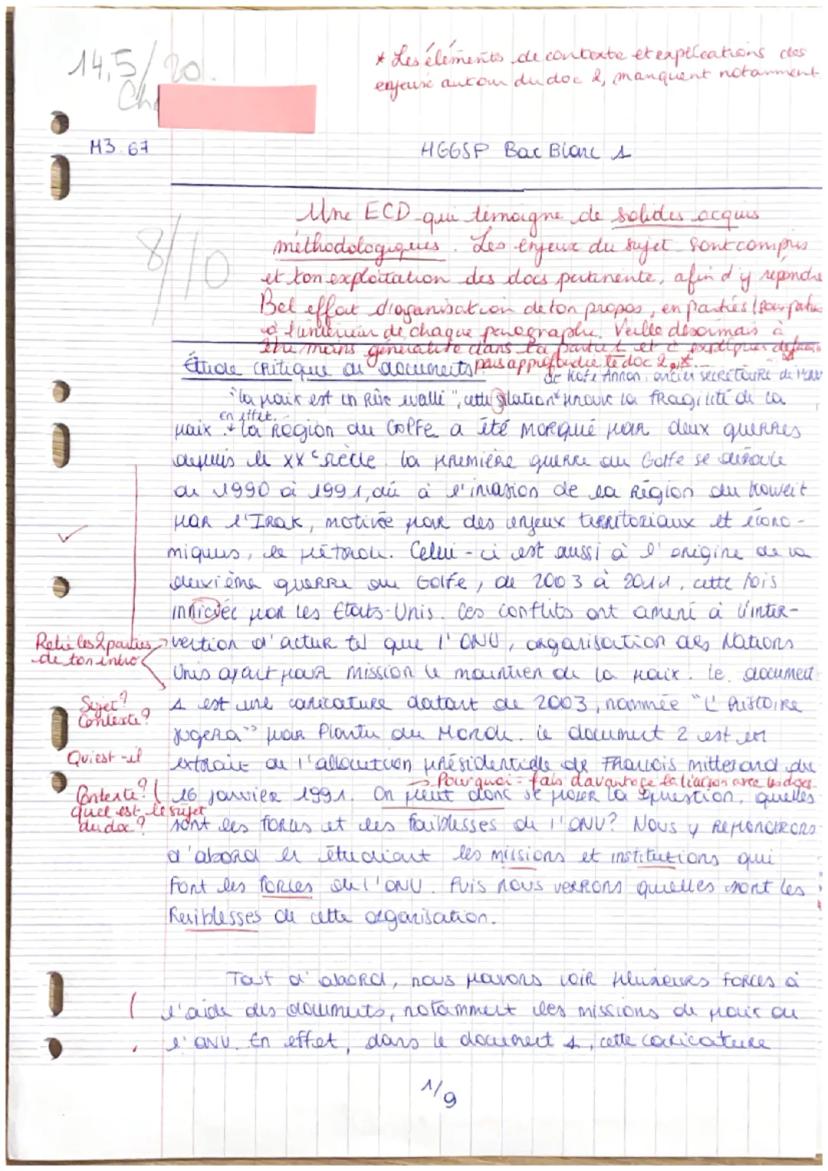 14,5/20.
* Les éléments de contexte et explications des
enjeux autour du doc 2, manquent notamment
H3.67
HGGSP Bac Blanc 1
8/10
Une ECD qui témoigne de solides acquis
méthodologiques. Les enjeux du sujet sont compris
et ton exploitation des docs pertinente, afin d'y répondre
Bel effort d'oganisation de ton propos, en parties
à l'intérieur de chaque paragraphe. Veille désormais à
être moins généraliste dans ta partie 1 et à expliquer
pas approfondie le doc 2, *
Étude critique de documents
de Kofi Annan, ancien secrétaire de
"la paix est un rêve", cette citation prouve la fragilité de la
en effet,
paix. La région du Golfe a été marqué par deux guerres
depuis le XXe siècle. La première guerre du Golfe se déroule
de 1990 à 1991, dû à l'invasion de la région du Koweit
par l'Irak, motivée par des enjeux territoriaux et écono-
miques, le pétrole. Celui-ci est aussi à l'origine de la
deuxième guerre du Golfe, de 2003 à 2011, cette fois
par les Etats-Unis. Ces conflits ont amené à l'inter-
Relie les 2 parties
de ton intro
vention d'acteur tel que l'ONU, organisation des Nations
Unis ayant pour mission le maintien de la paix. Le document
Sujet?
Contexte?
1 est une caricature datant de 2003, nommée "L'histoire
jugera" par Plantu du Monde. Le document 2 est un
Qui est-il
extrait de l'allocution présidentielle de François Mitterand du
→ Pourquoi - fais davantage la liaison avec les docs
Contexte?
quel est le sujet
du doc?
16 janvier 1991. On peut donc se poser la question, quelles
sont les forces et les faiblesses de l'ONU? Nous y répondrons
d'abord en étudiant les missions et institutions qui
font les forces de l'ONU. Puis nous verrons quelles sont les
faiblesses de cette organisation.
Tout d'abord, nous pouvons voir plusieurs forces à
l'aide des documents, notamment les missions de paix de
l'ONU. En effet, dans le document 1, cette caricature
1/9